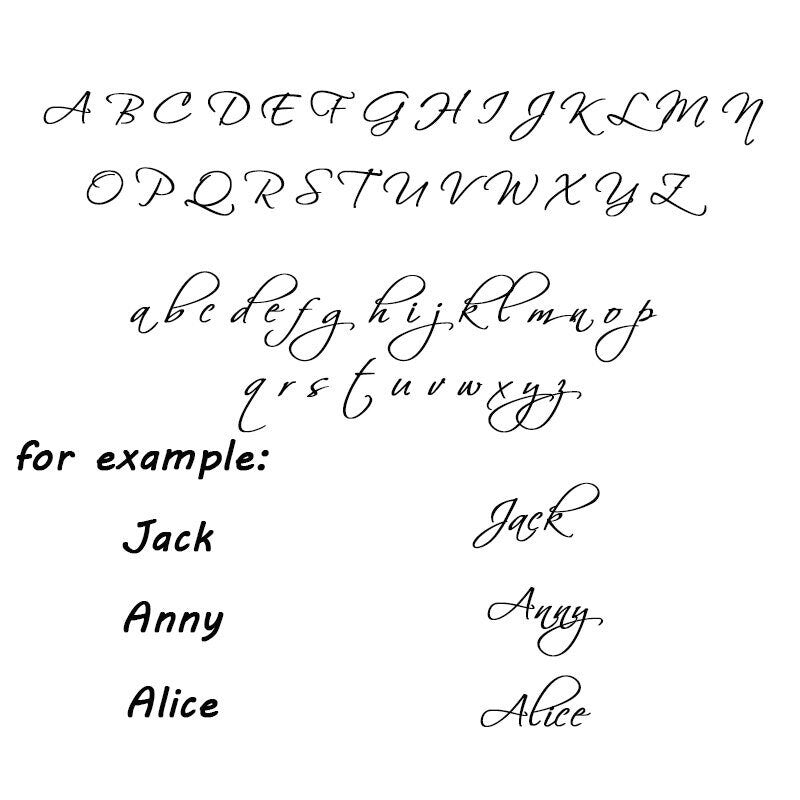 A B C D E F G H I J K L M N
O P Q R S T U V W X Y Z
a b c d e f g h i j k l m n o p
q r s t u v w x y z
for example:
Jack Jack
Anny Anny
Alice Alice